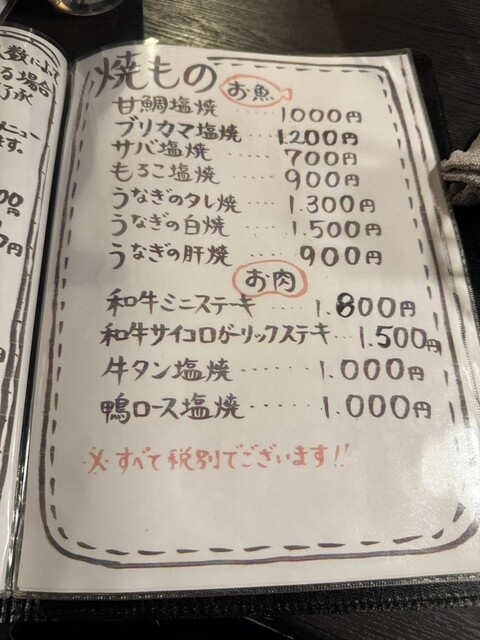 数によって
る場合
了承
メニュー
ます。
焼もの
お魚
甘鯛塩焼 ····· 1000円
ブリカマ塩焼 ···· 1.200円
サバ塩焼 ····· 700円
もろこ塩焼 ····· 900円
うなぎのタレ焼 ···· 1.300円
うなぎの白焼 ····· 1.500円
うなぎの肝焼 ····· 900円
お肉
和牛ミニステーキ ····· 1.800円
和牛サイコロガーリックステキ ··· 1.500円
牛タン塩焼 ······ 1.000円
鴨ロース塩焼 ····· 1.000円
※すべて税別でございます!!